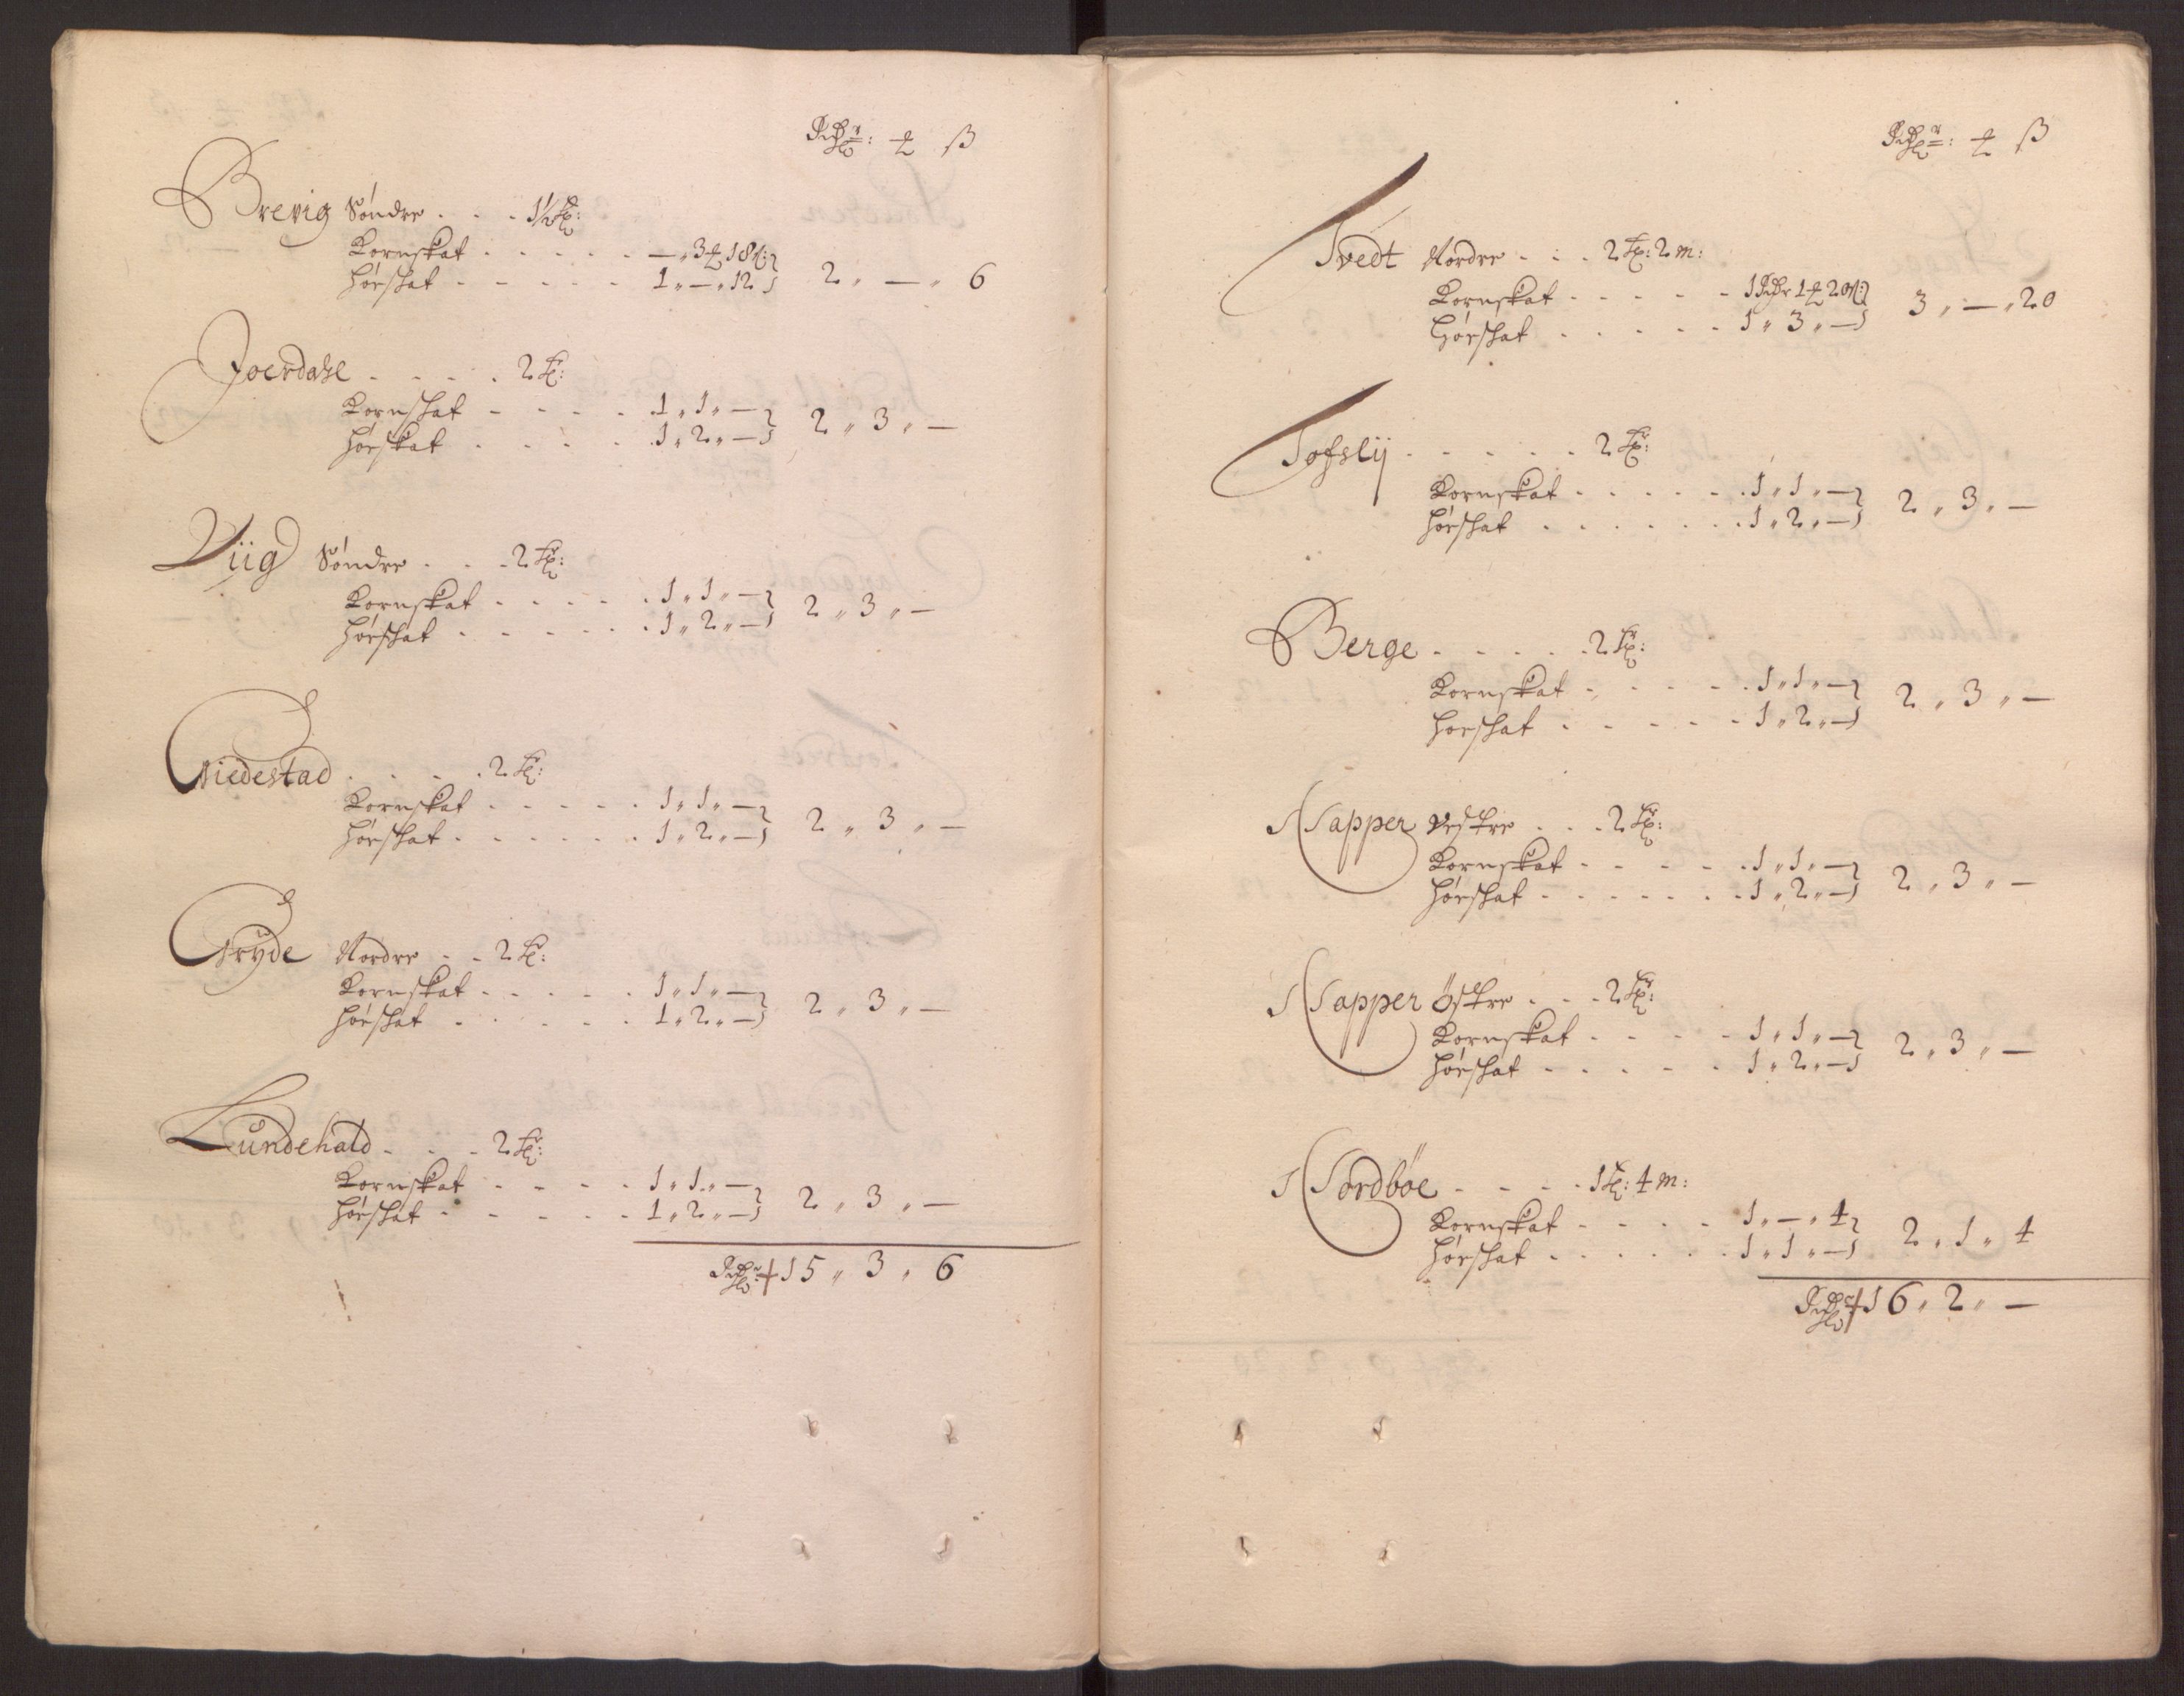 Rdr: ℔ ß
Brevig Søndre . . . 1½ Tr:
Kornskat . . . . . — „ 3 ℔ 18 ß:
Hørskat . . . . . 1 „ — „ 12 } 2 „ — „ 6
Joerdahl . . . . . 2 Tr:
Kornskat . . . . . 1 „ 1 „ —
Hørskat . . . . . 1 „ 2 „ — } 2 „ 3 „ —
Viig Søndre . . . 2 Tr:
Kornskat . . . . . 1 „ 1 „ —
Hørskat . . . . . 1 „ 2 „ — } 2 „ 3 „ —
Giedestad . . . . . 2 Tr:
Kornskat . . . . . 1 „ 1 „ —
Hørskat . . . . . 1 „ 2 „ — } 2 „ 3 „ —
Gryde Nordre . . 2 Tr:
Kornskat . . . . . 1 „ 1 „ —
Hørskat . . . . . 1 „ 2 „ — } 2 „ 3 „ —
Lundehald . . . 2 Tr:
Kornskat . . . . 1 „ 1 „ —
Hørskat . . . . . 1 „ 2 „ — } 2 „ 3 „ —
Rdr: 15 „ 3 „ 6
Rdr: ℔ ß
Tvedt Nordre . . . 2 Tr: 2 m:
Kornskat . . . . . 1 Rdr 1 ℔ 20 ß:
Hørskat . . . . . 1 „ 3 „ — } 3 „ — „ 20
Tofslij . . . . . 2 Tr:
Kornskat . . . . . 1 „ 1 „ —
Hørskat . . . . . 1 „ 2 „ — } 2 „ 3 „ —
Berge . . . . . 2 Tr:
Kornskat . . . . . 1 „ 1 „ —
Hørskat . . . . . 1 „ 2 „ — } 2 „ 3 „ —
Napper Vestre . . . 2 Tr:
Kornskat . . . . . 1 „ 1 „ —
Hørskat . . . . . 1 „ 2 „ — } 2 „ 3 „ —
Napper Östre . . . 2 Tr:
Kornskat . . . . 1 „ 1 „ —
Hørskat . . . . . 1 „ 2 „ — } 2 „ 3 „ —
Nordböe . . . . 1 Tr: 4 m:
Kornskat . . . . 1 „ — „ 4
Hørskat . . . . . 1 „ 1 „ — } 2 „ 1 „ 4
Rdr: 16 „ 2 „ —